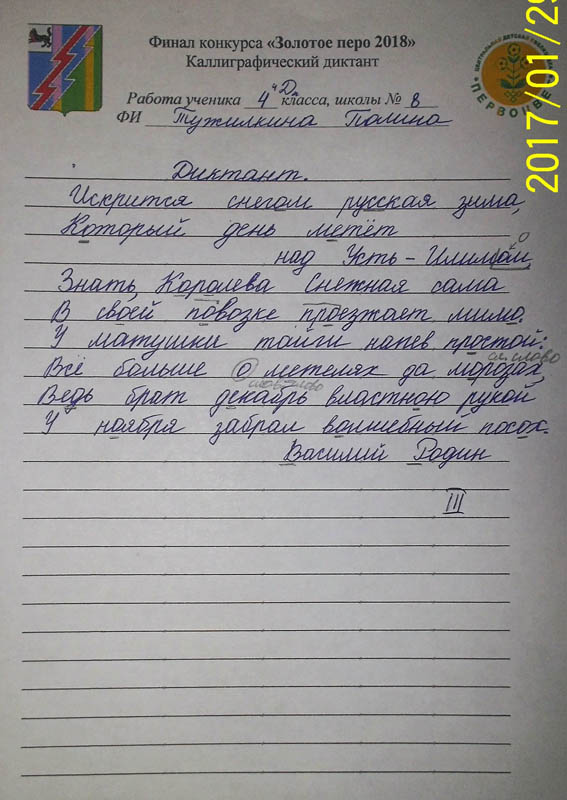 Финал конкурса «Золотое перо 2018»
Каллиграфический диктант
Работа ученика 4 «Д» класса, школы № 8
ФИ Тужилкина Полина
ЦЕНТРАЛЬНАЯ ДЕТСКАЯ
ПЕРВОЦВЕТ
2017/01/29
Диктант.
Искрится снегом русская зима,
Который день метёт
над Усть-Илимом
о
Знать, Королева Снежная сама
В своей повозке проезжает мимо.
У матушки тайги напев простой:
Всё больше о метелях да морозах,
слово
Ведь брат декабрь властною рукой
У ноября забрал волшебный посох.
Василий Родин
III